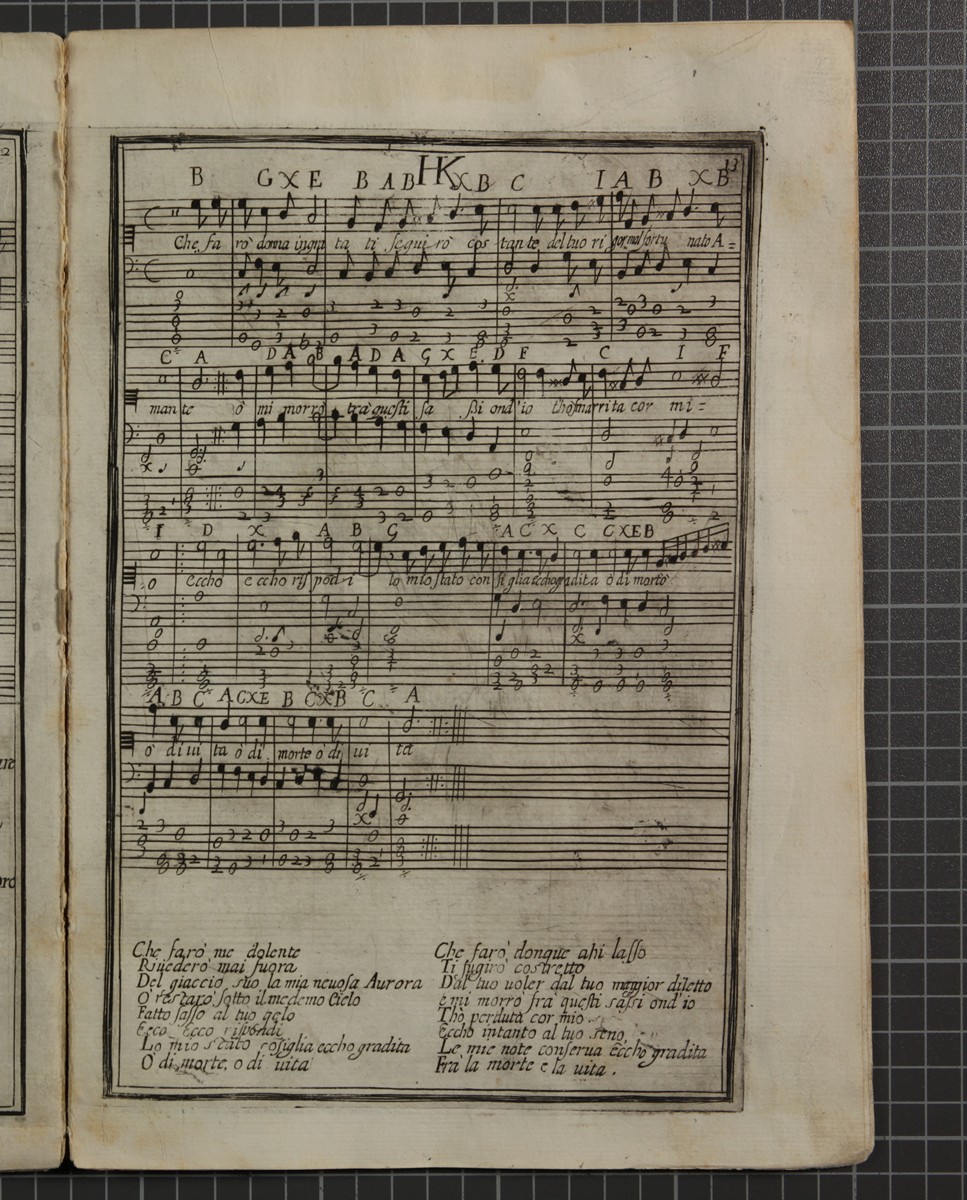 HK
13
B G X E B A B X B C I A B X B
Che fa ro donna ingra ta ti segui rò cos tan te del tuo ri gor mal fortu nato A =
C A D A B A D A G X E D F C I F
man te ò mi morrò tra questi sa ssi ond'io t'hò smarrita cor mi =
I D X A B G A C X C G X E B
o eccho e ccho ris pod i lo mio stato con si glia eccho gradita o di morte
A B C A G X E B C X B C A
ò di ui ta ò di morte ò di ui ta
Che farò me dolente
Riuederò mai fuora
Del giaccio suo la mia neuosa Aurora
O restarò sotto il medemo Cielo
Fatto sasso al tuo gelo
Ecco Ecco rispondi
Lo mio stato cosiglia eccho gradita
O di morte, o di uita
Che farò donque ahi lasso
Ti fugirò costretto
Dal tuo uoler dal tuo maggior diletto
e mi morrò fra questi sassi ond'io
Thò perduta cor mio
Eccho intanto al tuo seno,
Le mie note conserua eccho gradita
Fra la morte e la uita .